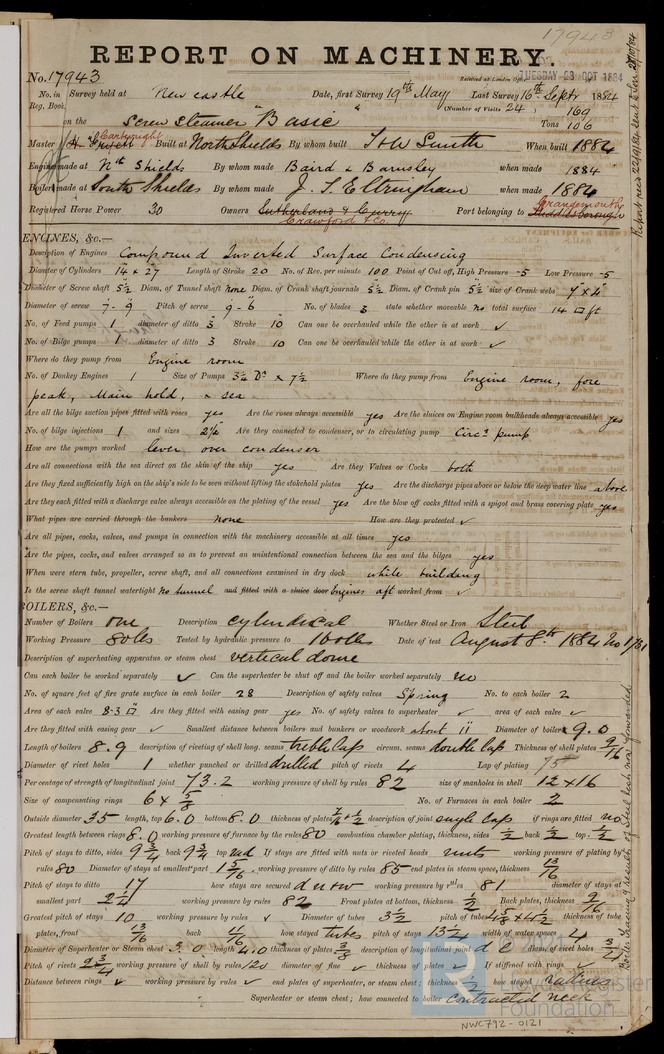 17943
REPORT ON MACHINERY.
No. 17943
Received at London Office TUESDAY 28 OCT 1884
No. in Survey held at New castle Date, first Survey 19th May Last Survey 16th Septr 1884
Reg. Book. (Number of Visits 24) 169
on the Screw steamer "Basic" Tons 106
Master Cartwright Built at North Shields By whom built T & W Smith When built 1884
Engines made at Nth Shields By whom made Baird & Barnsley when made 1884
Boilers made at South Shields By whom made J. T. Eltringham when made 1884
Registered Horse Power 30 Owners Sutherland & Curry Port belonging to Middlesborough
Crawford & Co. Grangemouth
ENGINES, &c.—
Description of Engines Compound Inverted Surface Condensing
Diameter of Cylinders 14 x 27 Length of Stroke 20 No. of Rev. per minute 100 Point of Cut off, High Pressure .5 Low Pressure .5
Diameter of Screw shaft 5½ Diam. of Tunnel shaft none Diam. of Crank shaft journals 5½ Diam. of Crank pin 5½ size of Crank webs 7" x 4"
Diameter of screw 7-9 Pitch of screw 9-6 No. of blades 3 state whether moveable no total surface 14 □ ft
No. of Feed pumps 1 diameter of ditto 3 Stroke 10 Can one be overhauled while the other is at work ✓
No. of Bilge pumps 1 diameter of ditto 3 Stroke 10 Can one be overhauled while the other is at work ✓
Where do they pump from Engine room
No. of Donkey Engines 1 Size of Pumps 3¼ Dr x 7½ Where do they pump from Engine room, fore
peak, Main hold, & sea
Are all the bilge suction pipes fitted with roses yes Are the roses always accessible yes Are the sluices on Engine room bulkheads always accessible yes
No. of bilge injections 1 and sizes 2½ Are they connected to condenser, or to circulating pump Circg pump
How are the pumps worked lever over condenser
Are all connections with the sea direct on the skin of the ship yes Are they Valves or Cocks both
Are they fixed sufficiently high on the ship's side to be seen without lifting the stokehold plates yes Are the discharge pipes above or below the deep water line above
Are they each fitted with a discharge valve always accessible on the plating of the vessel yes Are the blow off cocks fitted with a spigot and brass covering plate yes
What pipes are carried through the bunkers none How are they protected ✓
Are all pipes, cocks, valves, and pumps in connection with the machinery accessible at all times yes
Are the pipes, cocks, and valves arranged so as to prevent an unintentional connection between the sea and the bilges yes
When were stern tube, propeller, screw shaft, and all connections examined in dry dock while building
Is the screw shaft tunnel watertight no tunnel and fitted with a sluice door Engines aft worked from ✓
BOILERS, &c.—
Number of Boilers one Description cylindrical Whether Steel or Iron Steel
Working Pressure 80 lbs Tested by hydraulic pressure to 160 lbs Date of test August 8th 1884
Description of superheating apparatus or steam chest vertical dome
Can each boiler be worked separately ✓ Can the superheater be shut off and the boiler worked separately no
No. of square feet of fire grate surface in each boiler 28 Description of safety valves Spring No. to each boiler 2
Area of each valve 8.3 □" Are they fitted with easing gear yes No. of safety valves to superheater ✓ area of each valve ✓
Are they fitted with easing gear ✓ Smallest distance between boilers and bunkers or woodwork about 11 Diameter of boiler 9.0
Length of boilers 8.9 description of riveting of shell long. seams treble lap circum. seams double lap Thickness of shell plates 9/16
Diameter of rivet holes 1 whether punched or drilled drilled pitch of rivets 4 Lap of plating 7½
Percentage of strength of longitudinal joint 73.2 working pressure of shell by rules 82 size of manholes in shell 12 x 16
Size of compensating rings 6 x 5/8 No. of Furnaces in each boiler 2
Outside diameter 35 length, top 6.0 bottom 8.0 thickness of plates description of joint single lap if rings are fitted no
Greatest length between rings 8.0 working pressure of furnace by the rules 80 combustion chamber plating, thickness, sides ½ back ½ top ½
Pitch of stays to ditto, sides 9¾ back 9¾ top rad If stays are fitted with nuts or riveted heads nuts working pressure of plating by
rules 80 Diameter of stays at smallest part 1 5/16 working pressure of ditto by rules 85 end plates in steam space, thickness 13/16
Pitch of stays to ditto 17 how stays are secured d now working pressure by rules 81 diameter of stays at
smallest part 2¼ working pressure by rules 82 Front plates at bottom, thickness ½ Back plates, thickness 9/16
Greatest pitch of stays 10 working pressure by rules ✓ Diameter of tubes 3½ pitch of tubes 4⅝ x 4½ thickness of tube
plates, front 13/16 back how stayed tubes pitch of stays 13½ width of water spaces 4
Diameter of Superheater or Steam chest 3.0 length 4.0 thickness of plates 3/8 description of longitudinal joint d l diam. of rivet holes ¾
Pitch of rivets 2¾ working pressure of shell by rules 120 diameter of flue ✓ thickness of plates ✓ If stiffened with rings ✓
Distance between rings ✓ working pressure by rules ✓ end plates of superheater, or steam chest; thickness ½ how stayed radius
Superheater or steam chest; how connected to boiler contracted neck
Lloyd's Register
Foundation
NWC792-0121